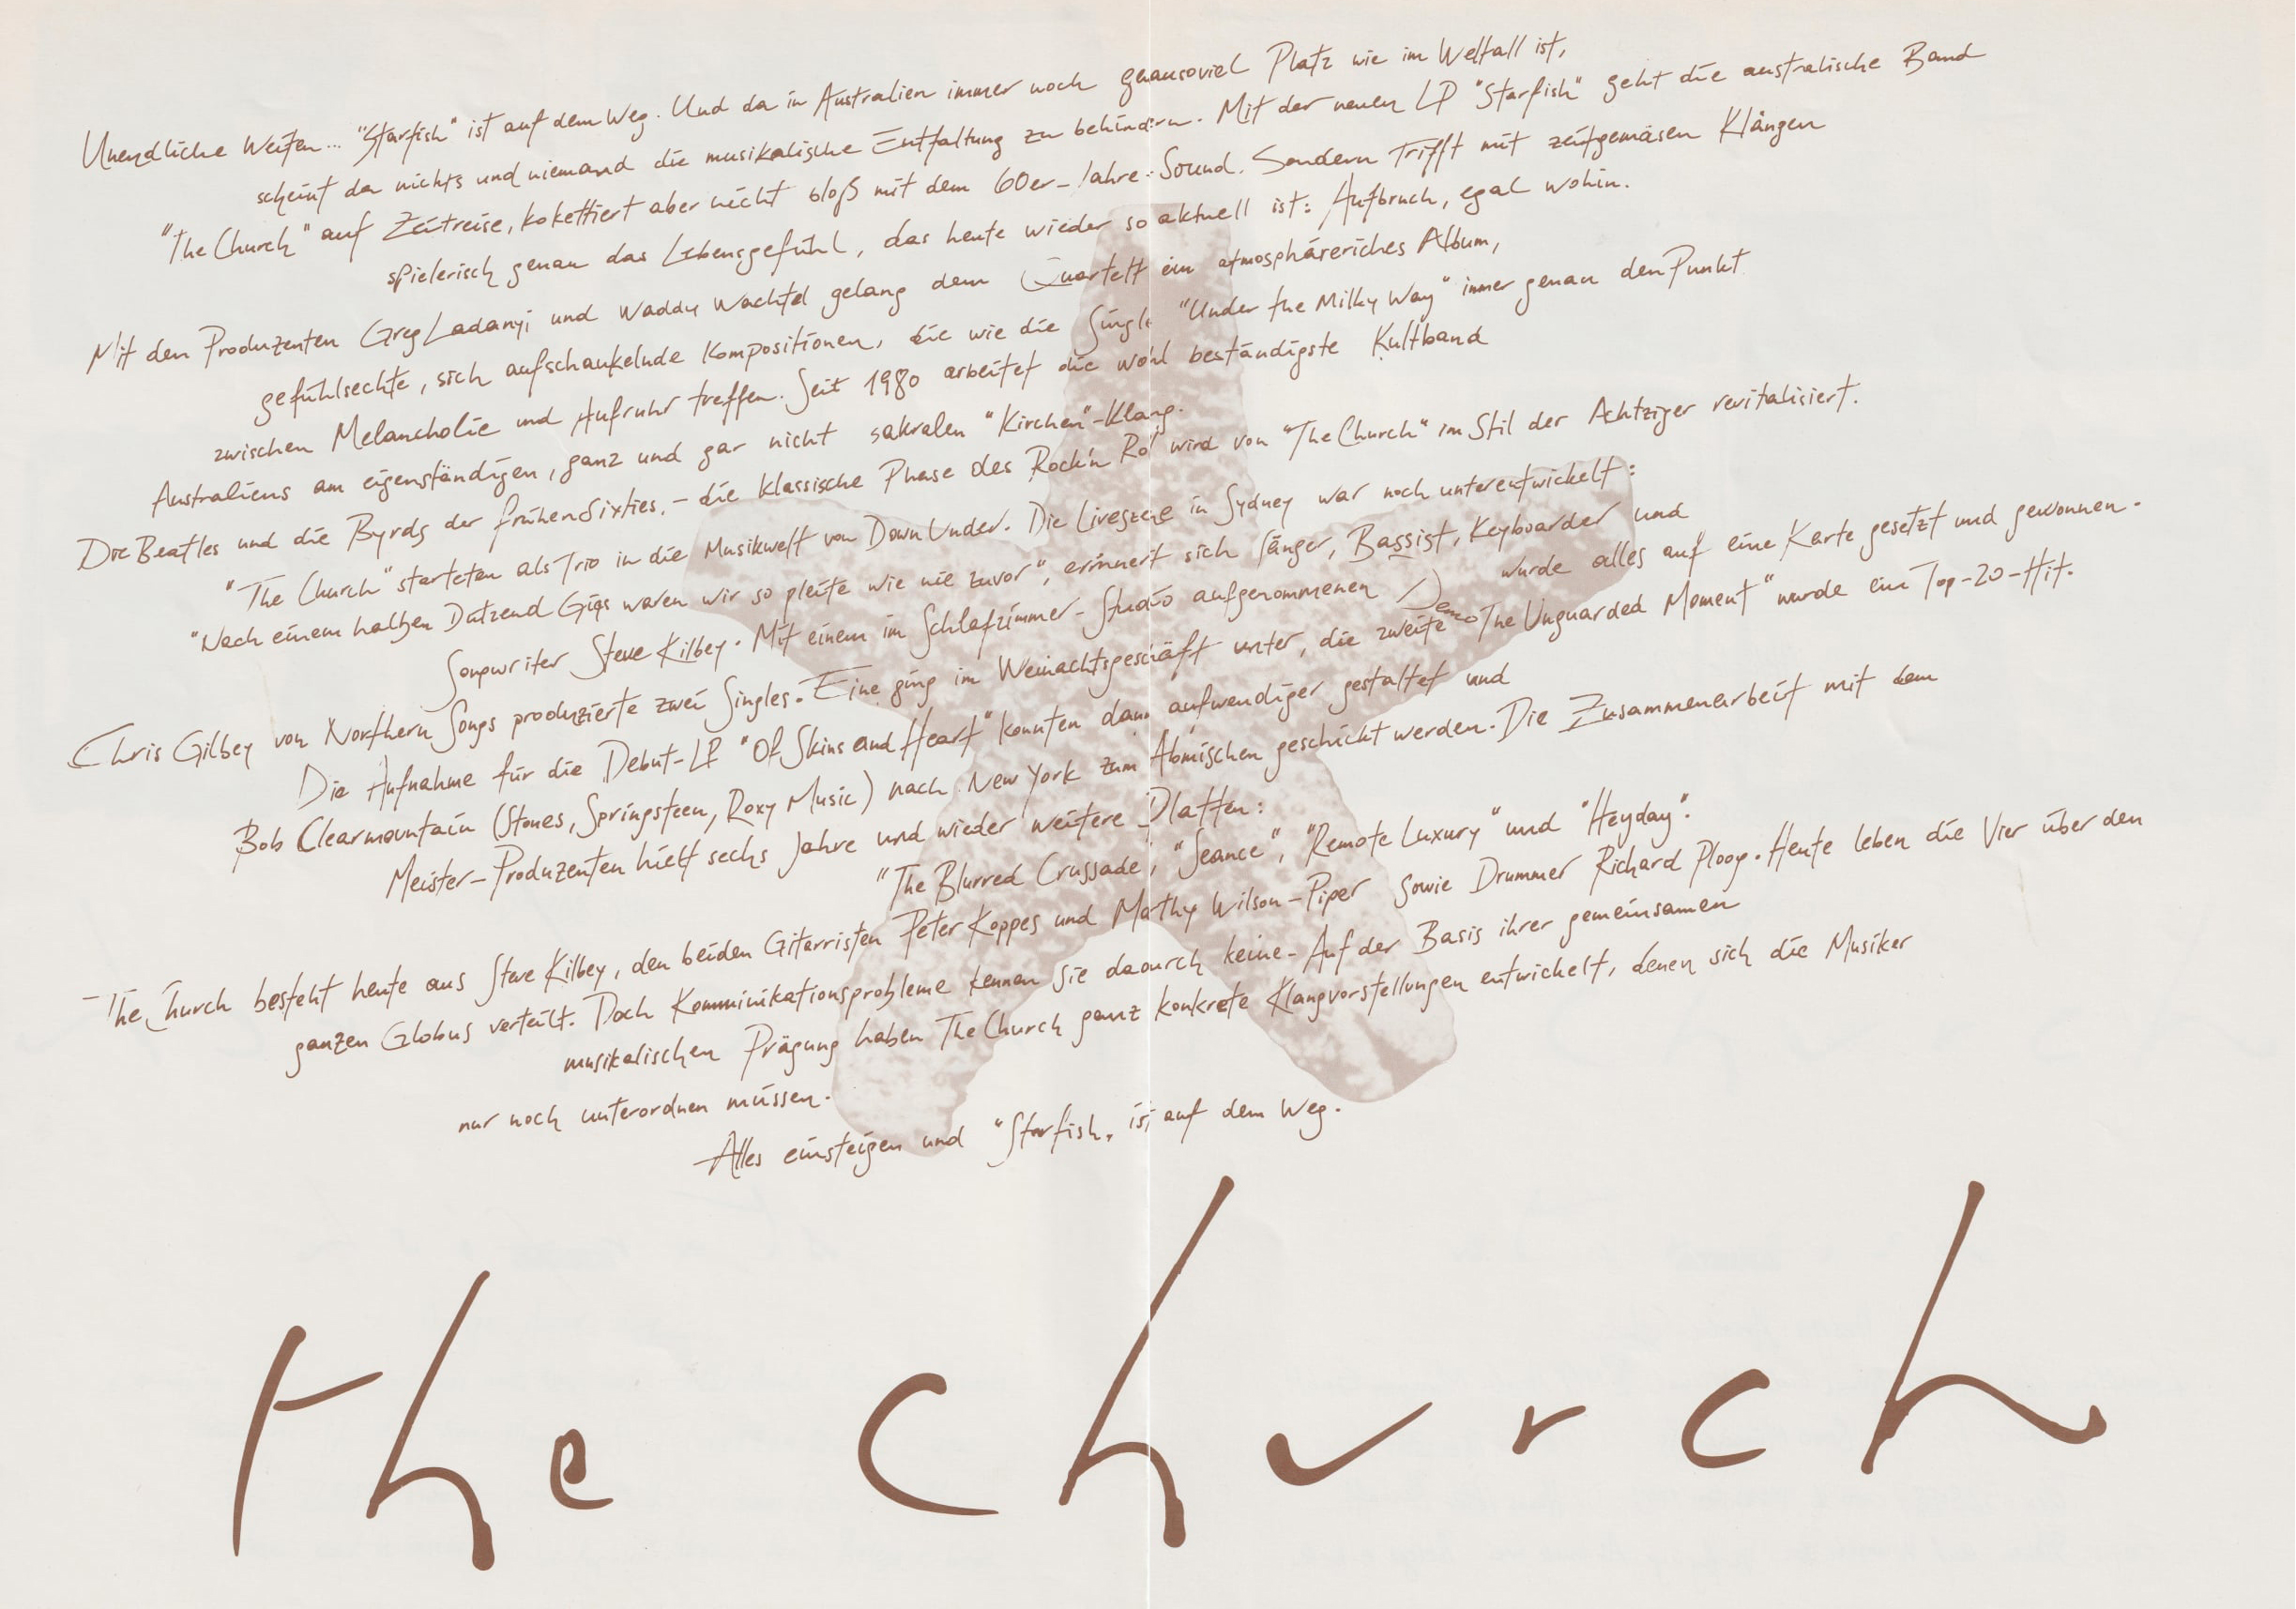 Unendliche Weiten... "Starfish" ist auf dem Weg. Und da in Australien immer noch genausoviel Platz wie im Weltall ist,
scheint da nichts und niemand die musikalische Entfaltung zu behindern. Mit der neuen LP "Starfish" geht die australische Band
"The Church" auf Zeitreise, kokettiert aber nicht bloß mit dem 60er-Jahre-Sound. Sondern Trifft mit zeitgemäsen Klängen
spielerisch genau das Lebensgefühl, das heute wieder so aktuell ist: Aufbruch, egal wohin.
Mit den Produzenten Greg Ladanyi und Waddy Wachtel gelang dem Quartett ein atmosphäreriches Album,
gefühlsechte, sich aufschaukelnde Kompositionen, die wie die Single "Under the Milky Way" immer genau den Punkt
zwischen Melancholie und Aufruhr treffen. Seit 1980 arbeitet die wohl beständigste Kultband
Australiens am eigenständigen, ganz und gar nicht sakralen "Kirchen"-Klang.
Die Beatles und die Byrds der frühen Sixties, - die klassische Phase des Rock'n Ro' wird von "The Church" im Stil der Achtziger revitalisiert.
"The Church" starteten als Trio in die Musikwelt von Down Under. Die Liveszene in Sydney war noch unterentwickelt:
"Nach einem halben Dutzend Gigs waren wir so pleite wie nie zuvor", erinnert sich Sänger, Bassist, Keyboarder und
Songwriter Steve Kilbey. Mit einem im Schlafzimmer-Studio aufgenommenen Demo wurde alles auf eine Karte gesetzt und gewonnen.
Chris Gilbey von Northern Songs produzierte zwei Singles. Eine ging im Weinachtsgeschäft unter, die zweite "The Unguarded Moment" wurde ein Top-20-Hit.
Die Aufnahme für die Debut-LP "Of Skins and Heart" konnten dann aufwendiger gestaltet und
Bob Clearmountain (Stones, Springsteen, Roxy Music) nach New York zum Abmischen geschickt werden. Die Zusammenarbeit mit dem
Meister-Produzenten hielt sechs Jahre und wieder weitere Platten:
"The Blurred Crussade", "Seance", "Remote Luxury" und "Heyday".
The Church besteht heute aus Steve Kilbey, den beiden Gitarristen Peter Koppes und Mathy Wilson-Piper sowie Drummer Richard Ploog. Heute leben die Vier über den
ganzen Globus verteilt. Doch Komminikationsprobleme kennen sie dadurch keine. Auf der Basis ihrer gemeinsamen
musikalischen Prägung haben The Church ganz konkrete Klangvorstellungen entwickelt, denen sich die Musiker
nur noch unterordnen müssen.
Alles einsteigen und "Starfish" ist auf dem Weg.
the church